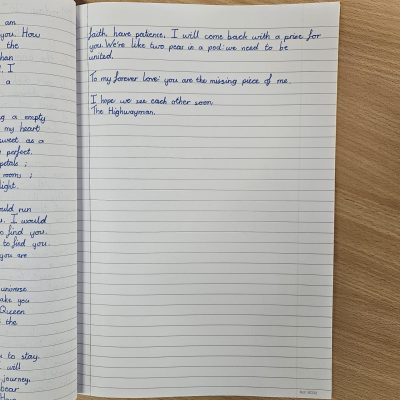 am
you. How
the
than
I
a
g a empty
my heart
sweet as a
perfect.
petals ;
rooms ;
light.
ould run
I would
to find you.
to find you
you are
universe
ake you
Queen
the
to stay.
will
journey.
bear
faith, have patience, I will come back with a prize for
you. We're like two peas in a pod we need to be
united.
To my forever love you are the missing piece of me.
I hope we see each other soon
The Highwayman.